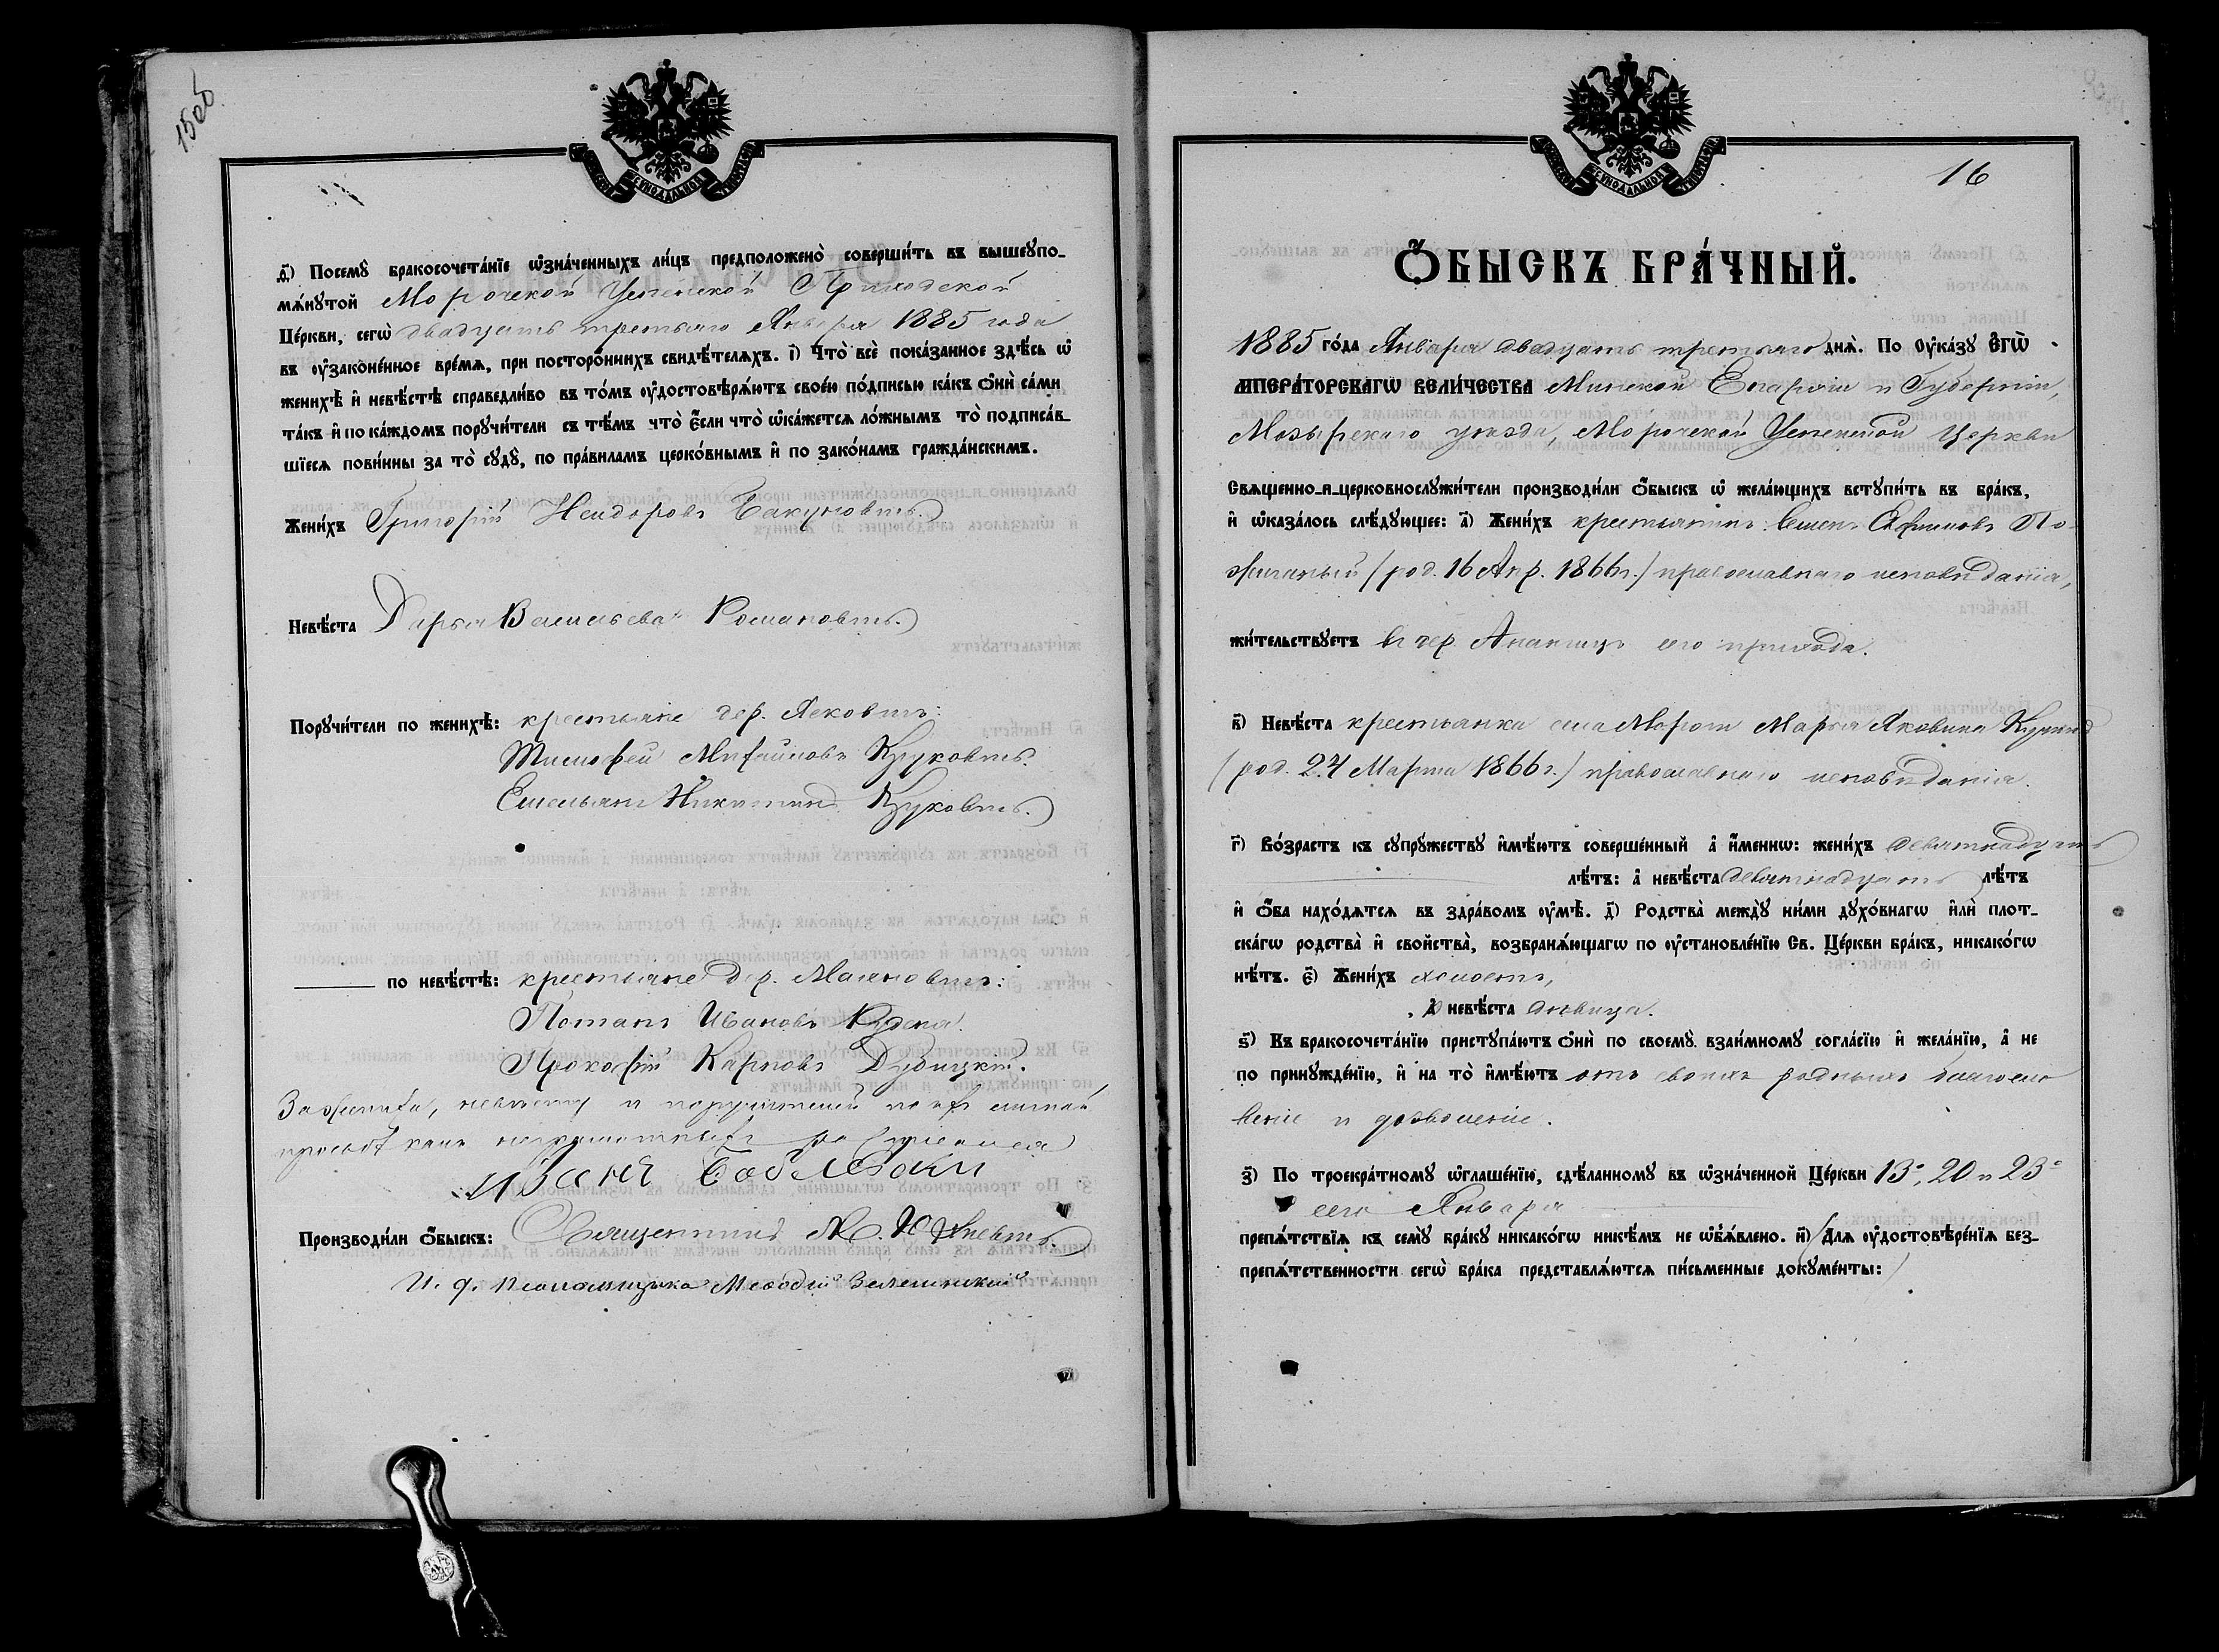 15об
д҃) Посемꙋ̀ бракосочета́нїе ѡ҆зна́ченныхъ ли́цъ предположено̀ соверши́ть въ вышеꙋпо-
мѧ́нꙋтой Морочской Успенской Приходской
Це́ркви, сегѡ̀ двадцать третьяго Января 1885 года
въ ᲂу҆зако́ненное вре́мѧ, при посторо́ннихъ свидѣ́телѧхъ. і҃) Что̀ всѐ пока́занное здѣ́сь ѡ҆
женихѣ̀ и҆ невѣ́стѣ справедли́во въ то́мъ ᲂу҆достовѣрѧ́ютъ свое́ю по́дписью ка́къ ѻ҆нѝ са́ми
та́къ и҆ по ка́ждомъ порꙋчи́тели съ тѣ́мъ что̀ є҆́сли что̀ ѡ҆ка́жетсѧ ло́жнымъ то̀ подписа́в-
шїесѧ пови́нны за то̀ сꙋдꙋ̀, по пра́виламъ церко́внымъ и҆ по зако́намъ гражда́нскимъ.
Жени́хъ Григорій Исидоровъ Бакуновичъ.
Невѣ́ста Дарья Васильева Романовичъ.
Порꙋчи́тели по женихѣ̀: крестьяне дер. Ясковичъ:
Тимофей Михайловъ Круковичъ.
Емельянъ Никитинъ Круковичъ.
по невѣ́стѣ: крестьяне дер. Малковичъ:
Потапъ Ивановъ
Прокофій Карповъ Дубицкій.
За жениха, невѣсту и поручителей по ихъ личной
просьбѣ какъ неграмотныхъ росписался
Иванъ
Производи́ли ѻ҆́быскъ: Священникъ
И. д. псаломщика Меѳодій Зелезинскій
16
Ѻ҆́БЫСКЪ БРА́ЧНЫЙ.
1885 го́да Января двадцать третьяго днѧ̀. По ᲂу҆ка́зꙋ Є҆ГѠ̀
ИМПЕРА́ТОРСКАГѠ ВЕЛИ́ЧЕСТВА Минской Епархіи и Губерніи,
Мозырскаго уѣзда, Морочской Успенской Церкви
Свѧще́нно-и-церковнослꙋжи́тели производи́ли ѻ҆́быскъ ѡ҆ жела́ющихъ встꙋпи́ть въ бра́къ,
и҆ ѡ҆каза́лось слѣ́дꙋющее: а҃) Жени́хъ крестьянинъ Семенъ Ефимовъ По-
жиганый (род. 16 Апр. 1866 г.) православнаго исповѣданія,
жи́тельствꙋетъ въ дер. Ананчицъ сего прихода.
в҃) Невѣ́ста крестьянка села Морочи Марья Яковина
(род. 24 Марта 1866 г.) православнаго исповѣданія.
г҃) Во́зрастъ къ сꙋпрꙋ́жествꙋ и҆мѣ́ютъ соверше́нный а҆̀ и҆́меннѡ: жени́хъ девятнадцать
лѣ́тъ: а҆̀ невѣ́ста девятнадцать лѣ́тъ
и҆ ѻ҆́ба нахо́дѧтсѧ въ здра́вомъ ᲂу҆мѣ̀. д҃) Родства̀ междꙋ̀ ни́ми дꙋхо́внагѡ и҆лѝ плот-
ска́гѡ родства̀ и҆ сво́йства̀, возбранѧ́ющагѡ по ᲂу҆становле́нїю Св. Це́ркви бра́къ, никако́гѡ
нѣ́тъ. є҃) Жени́хъ холостъ,
а҆̀ невѣ́ста дѣвица.
ѕ҃) Къ бракосочета́нїю пристꙋпа́ютъ ѻ҆нѝ по своемꙋ̀ взаи́мномꙋ согла́сїю и҆ жела́нїю, а҆̀ не
по принꙋжде́нїю, и҆ на то̀ и҆мѣ́ютъ отъ своихъ родныхъ благосло
веніе и дозволеніе.
з҃) По троекра́тномꙋ ѡ҆глаше́нїю, сдѣ́ланномꙋ въ ѡ҆зна́ченной Це́ркви 13го, 20 и 23го
сего Января
препѧ́тствїѧ къ семꙋ̀ бра́кꙋ никако́гѡ никѣ́мъ не ѡ҆б̾ѧ́влено. и҃) (Длѧ ᲂу҆достовѣре́нїѧ без-
препѧ́тственности сегѡ̀ бра́ка представлѧ́ютсѧ пи́сьменные докꙋме́нты:)